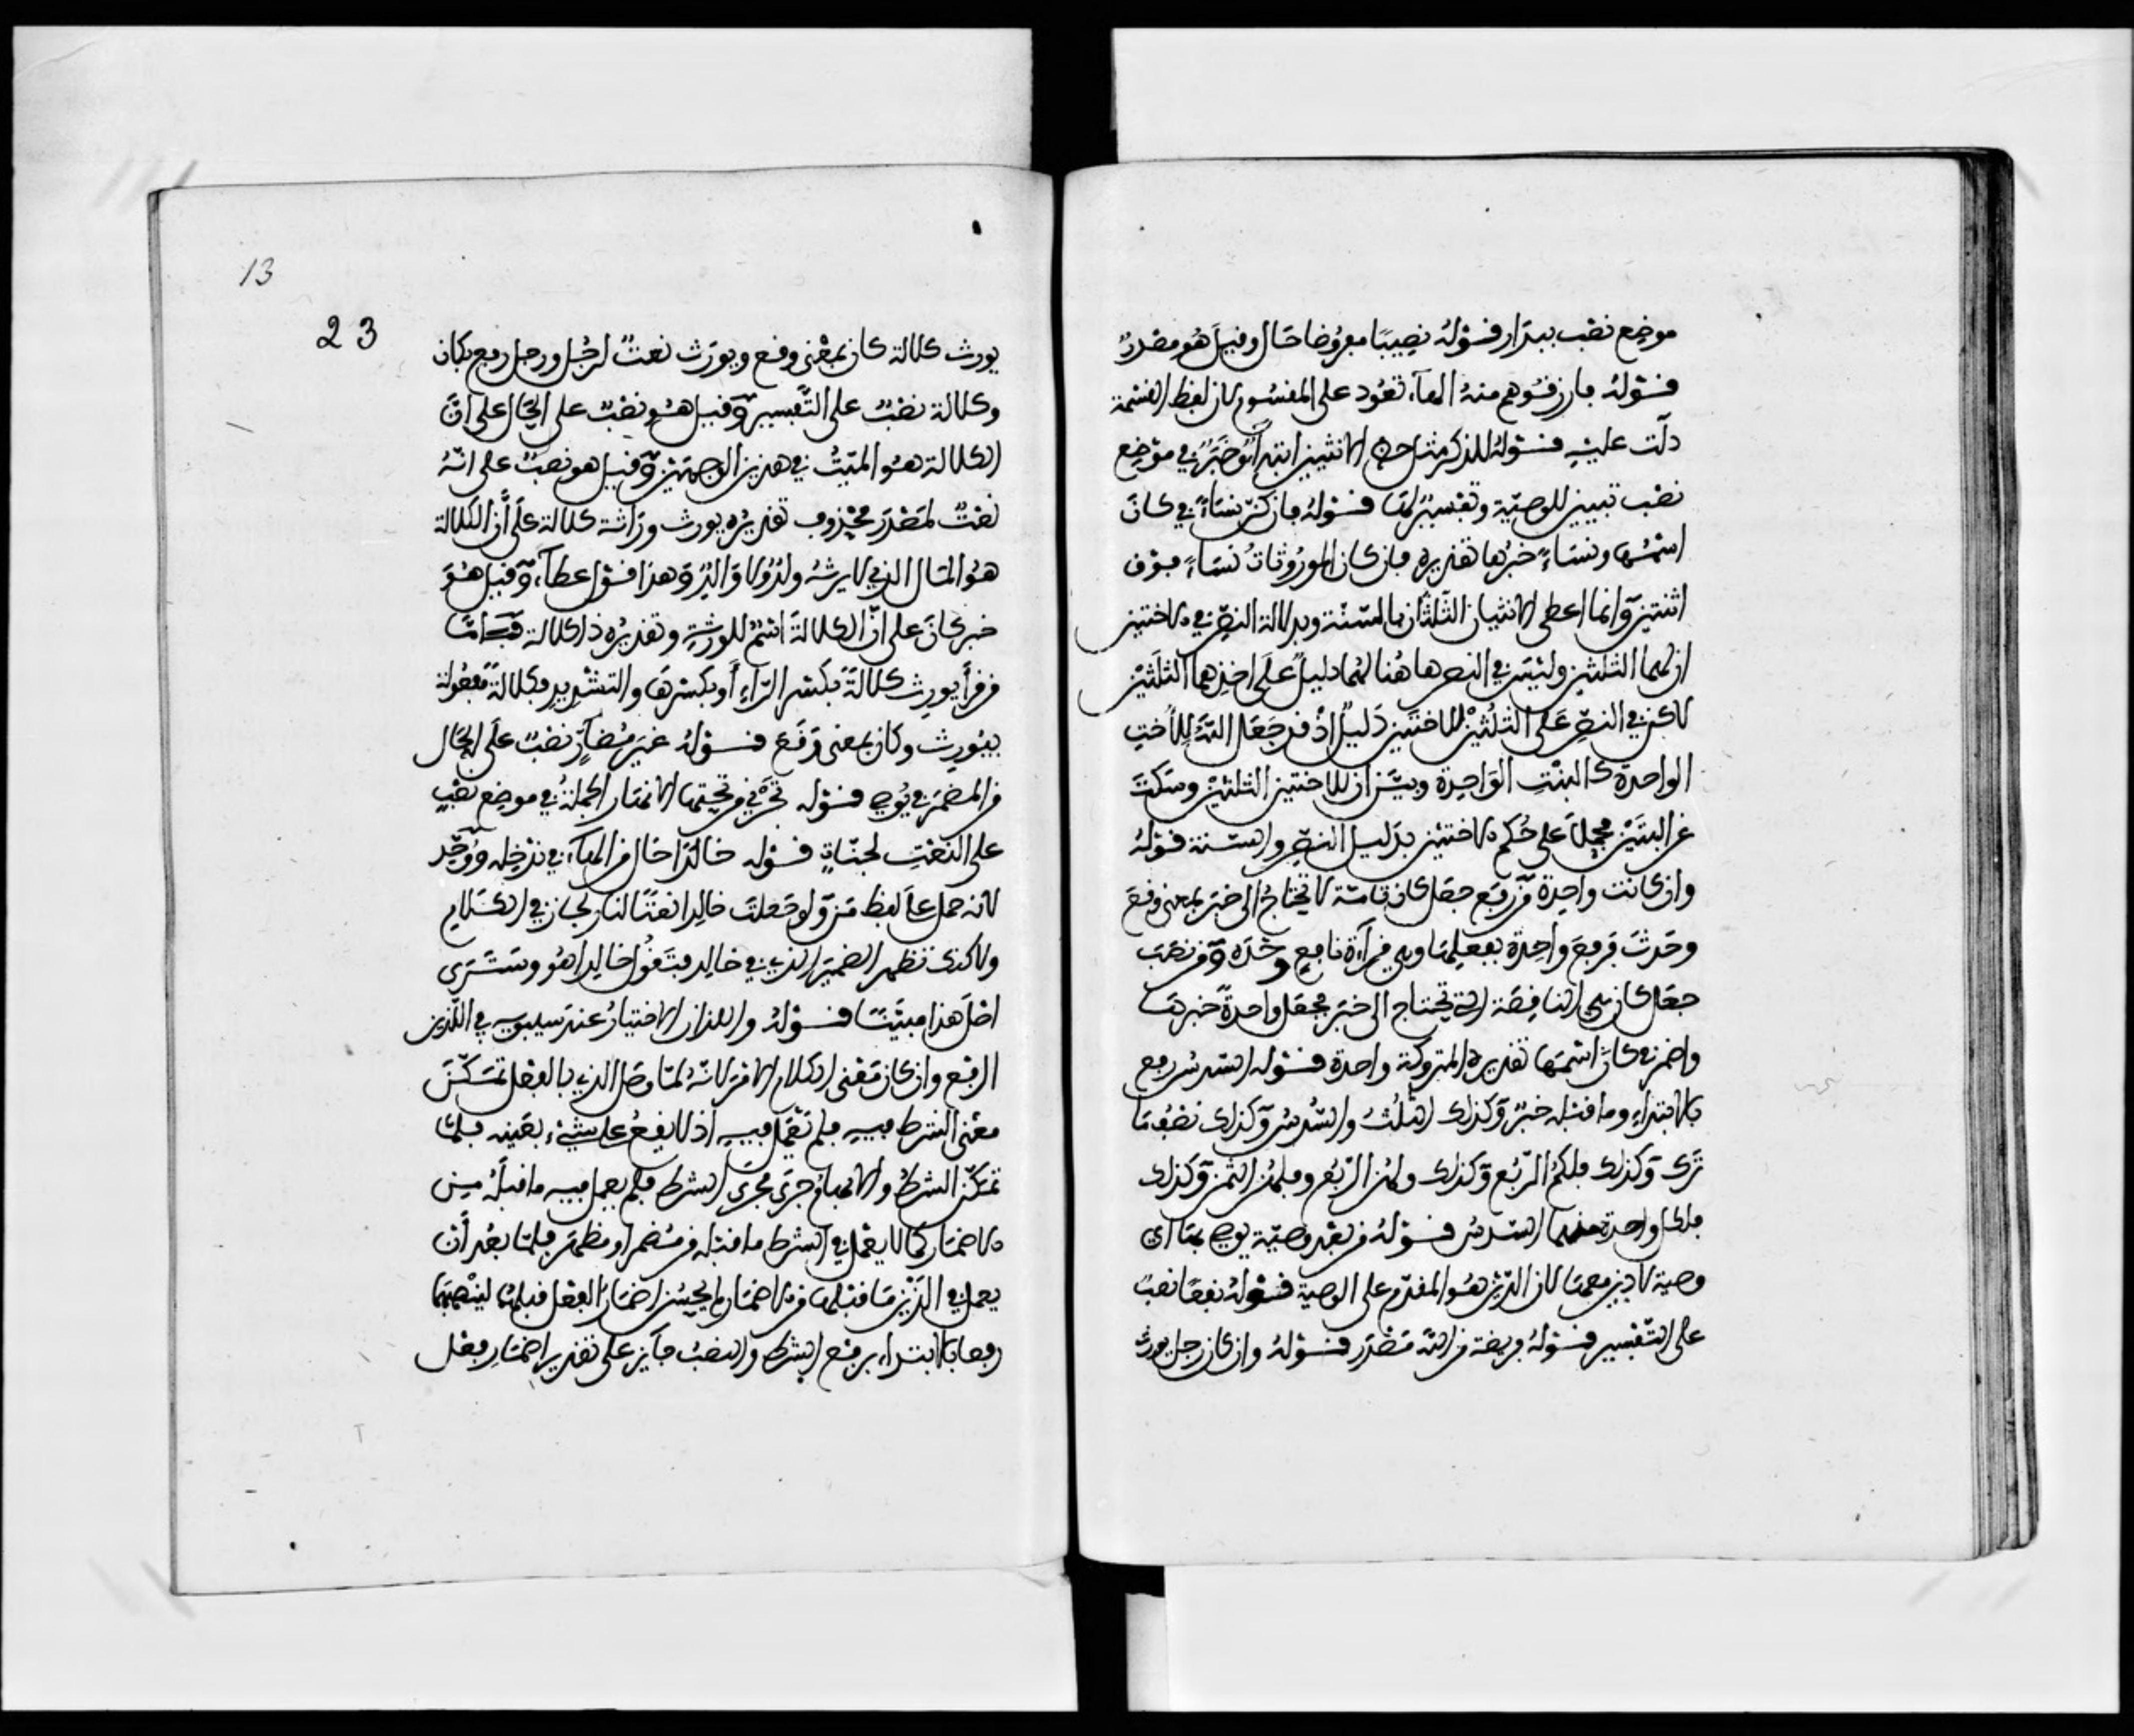 موضع نصب ببدارا قوله نصيبا مفروضا حال وقيل هو مصدر
قوله فارزقوهم منه الهاء تعود على المقسوم لان لفظ القسمة
دلت عليه قوله للذكر مثل حظ الانثيين ابتداء وخبر في موضع
نصب تبيين للوصية وتفسير لها قوله فان كن نساء في كان
اسمها ونساء خبرها تقديره فان كان الموروثات نساء فوق
اثنتين وانما اعطي الانثيان الثلثان بالسنة وبدلالة النص في الاختين
ان لهما الثلثين وليس في النص هاهنا لهما دليل على اخذهما الثلثين
لاكن في النص على الثلثين للاختين دليل اذ قد جعل الله للاخت
الواحدة كالبنت الواحدة وبين ان للاختين الثلثين وسكت
عن البنتين فحملا على حكم الاختين بدليل النص والسنة قوله
وان كانت واحدة من رفع جعل كان تامة لا تحتاج الى خبر بمعنى وقع
وحدث فرفع واحدة بفعلها وهي قراءة نافع وحده ومن نصب
جعل كان هي الناقصة التي تحتاج الى خبر فجعل واحدة خبرها
واضمر في كان اسمها تقديره المتروكة واحدة قوله السدس رفع
بالابتداء وما قبله خبر وكذلك الثلث والسدس وكذلك نصف ما
ترك وكذلك فلكم الربع وكذلك ولهن الربع وفلهن الثمن وكذلك
فلكل واحد منهما السدس قوله من بعد وصية يوصي بها اي
وصية لا دين معها لان الدين هو المقدم على الوصية قوله نفعا نصب
على التفسير قوله فريضة من الله مصدر قوله وان كان رجل يورث
13
23
يورث كلالة كان بمعنى وقع ويورث نعت لرجل ورجل رفع بكان
وكلالة نصب على التفسير وقيل هو نصب على الحال على ان
الكلالة هو الميت في هذين الوجهين وقيل هو نصب على انه
نعت لمصدر محذوف تقديره يورث وراثة كلالة على أن الكلالة
هو المال الذي لا يرثه ولد ولا والد وهذا قول عطاء وقيل هو
خبر كان على ان الكلالة اسم للورثة وتقديره ذا كلالة فاما
من قرأ يورث كلالة بكسر الراء أو بكسرها والتشديد فكلالة مفعولة
بيورث وكان بمعنى وقع قوله غير مضار نصب على الحال
من المضمر في يوصي قوله تجري من تحتها الانهار الجملة في موضع نصب
على النعت لجنات قوله خالدا حال من الهاء في ندخله ووحد
لانه حمل على لفظ من ولو جعلت خالدا نعتا لنار لجاز في الكلام
ولاكنك تظهر الضمير الذي في خالد فتقول خالدا هو وسترى
اصل هذا مبينا قوله واللذان الاختيار عند سيبويه في اللذين
الرفع وان كان معنى الكلام الامر لانه لما وصل الذي بالفعل تمكن
معنى الشرط فيه فلم يعمل فيه اذ لا يقع على شيء بعينه فلما
تمكن الشرط والابهام جرى مجرى الشرط فلم يعمل فيه ما قبله من
الاضمار كما لا يعمل في الشرط ما قبله من مضمر او مظهر فلما بعد أن
يعمل في الذين ما قبلهما من الاضمار لم يحسن اضمار الفعل قبلهما لينصبهما
رفعا بالابتداء برفع الشرط والنصب جايز على تقدير اضمار فعل